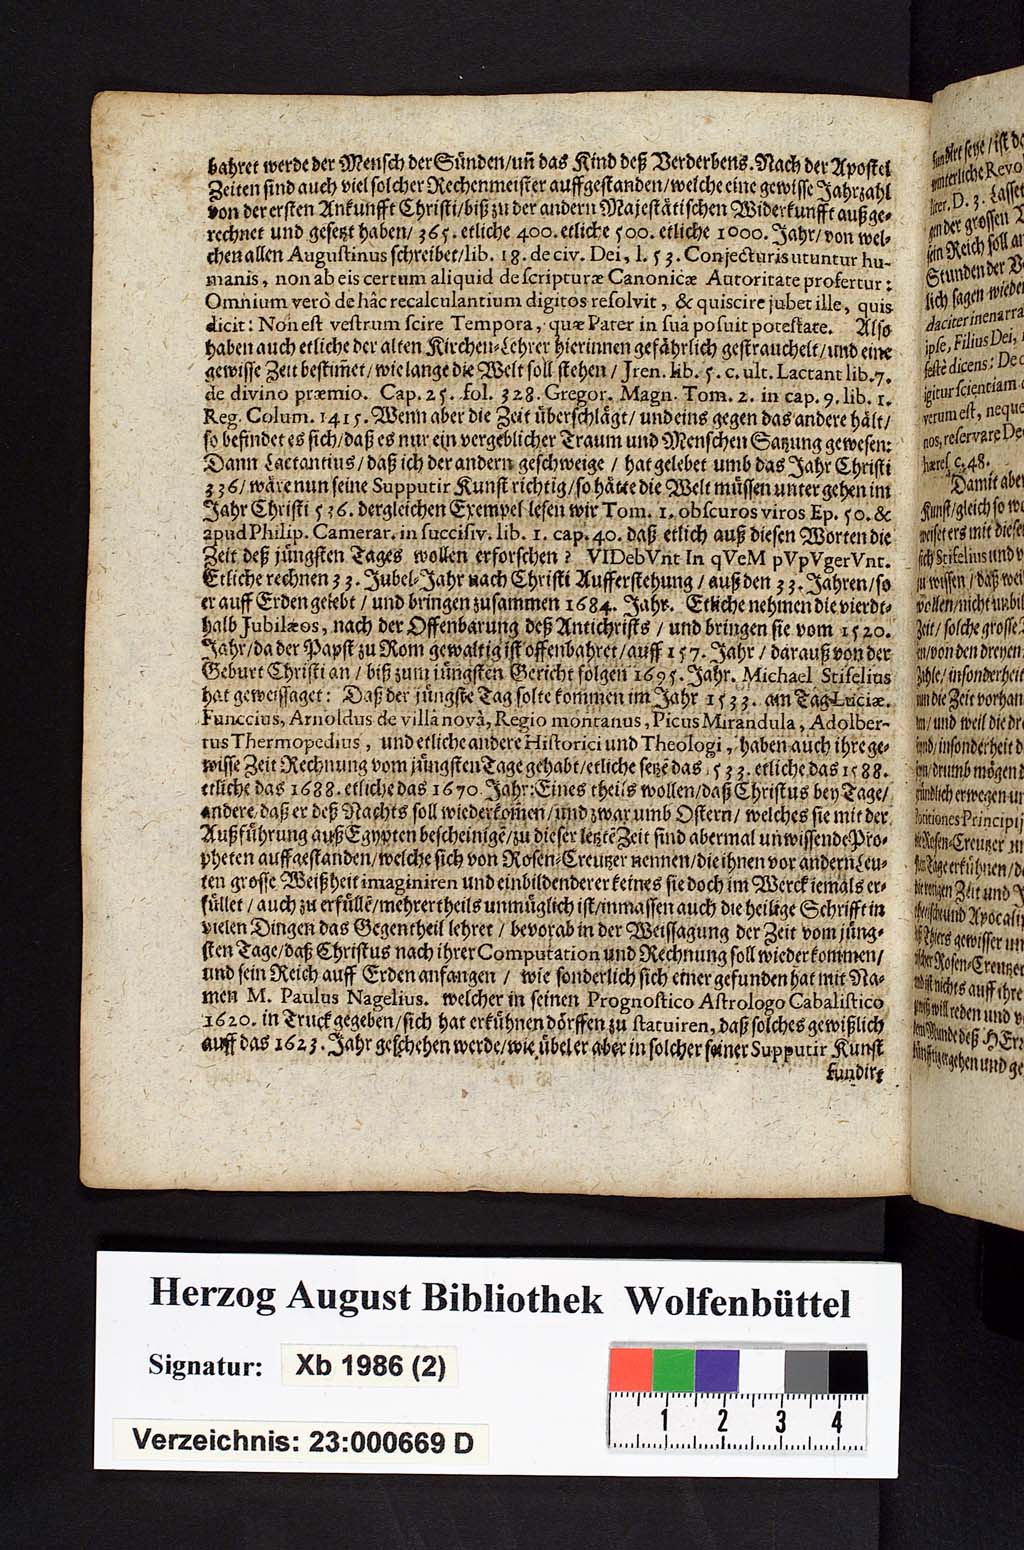 bahret werde der Mensch der Sünden/un̄ das Kind deß Verderbens. Nach der Apostel
Zeiten sind auch viel solcher Rechenmeister auffgestanden/welche eine gewisse Jahrzahl
von der ersten Ankunfft Christi/biß zu der andern Majestätischen Widerkunfft außge-
rechnet und gesetzt haben/ 365. etliche 400. etliche 500. etliche 1000. Jahr/ von wel-
chen allen Augustinus schreibet/lib. 18. de civ. Dei, l. 53. Conjecturis utuntur hu-
manis, non ab eis certum aliquid de scripturæ Canonicæ Autoritate profertur:
Omnium verò de hâc recalculantium digitos resolvit, & quiscire jubet ille, quis
dicit: Non est vestrum scire Tempora, quæ Pater in suâ posuit potestate. Also
haben auch etliche der alten Kirchen-Lehrer hierinnen gefährlich gestrauchelt/und eine
gewisse Zeit bestim̄et/wie lange die Welt soll stehen/ Jren. lib. 5. c. ult. Lactant lib. 7.
de divino præmio. Cap. 25. fol. 328. Gregor. Magn. Tom. 2. in cap. 9. lib. 1.
Reg. Colum. 1415. Wenn aber die Zeit überschlägt/ und eins gegen das andere hält/
so befindet es sich/daß es nur ein vergeblicher Traum und Menschen Satzung gewesen:
Dann Lactantius/ daß ich der andern geschweige/ hat gelebet umb das Jahr Christi
336/ wäre nun seine Supputir Kunst richtig/so hätte die Welt müssen untergehen im
Jahr Christi 536. dergleichen Exempel lesen wir Tom. 1. obscuros viros Ep. 50. &
apud Philip. Camerar. in succisiv. lib. 1. cap. 40. daß etlich auß diesen Worten die
Zeit deß jüngsten Tages wollen erforschen? VIDebVnt In qVeM pVpVgerVnt.
Etliche rechnen 33. Jubel-Jahr nach Christi Aufferstehung/ auß den 33. Jahren/so
er auff Erden gelebt/ und bringen zusammen 1684. Jahr. Etliche nehmen die vierdt-
halb Jubilæos, nach der Offenbarung deß Antichrists/ und bringen sie vom 1520.
Jahr/da der Papst zu Rom gewaltig ist offenbahret/auff 157. Jahr/ darauß von der
Geburt Christi an/ biß zum jüngsten Gericht folgen 1695. Jahr. Michael Stifelius
hat geweissaget: Daß der jüngste Tag solte kommen im Jahr 1533. am Tag Luciæ.
Funccius, Arnoldus de villâ novâ, Regio montanus, Picus Mirandula, Adolber-
tus Thermopedius, und etliche andere Historici und Theologi, haben auch ihre ge-
wisse Zeit Rechnung vom jüngsten Tage gehabt/etliche setzē das 1533. etliche das 1588.
etliche das 1688. etliche das 1670. Jahr: Eines theils wollen/daß Christus bey Tage/
andere, daß er deß Nachts soll wiederkom̄en/und zwar umb Ostern/ welches sie mit der
Außführung auß Egypten bescheinigē/zu dieser letztē Zeit sind abermal unwissende Pro-
pheten auffgestanden/welche sich von Rosen-Creutzer nennen/die ihnen vor andern Leu-
ten grosse Weißheit imaginiren und einbilden derer keines sie doch im Werck iemals er-
füllet/ auch zu erfüllē/mehrertheils unmüglich ist/inmassen auch die heilige Schrifft in
vielen Dingen das Gegentheil lehret/ bevorab in der Weissagung der Zeit vom jüng-
sten Tage/daß Christus nach ihrer Computation und Rechnung soll wiederkommen/
und sein Reich auff Erden anfangen/ wie sonderlich sich einer gefunden hat mit Na-
men M. Paulus Nagelius. welcher in seinen Prognostico Astrologo Cabalistico
1620. in Truck gegeben/sich hat erkühnen dörffen zu statuiren, daß solches gewißlich
auff das 1623. Jahr geschehen werde/wie übel er aber in solcher seiner Supputir Kunst
fundirt
Herzog August Bibliothek Wolfenbüttel
Signatur: Xb 1986 (2)
Verzeichnis: 23:000669 D
1 2 3 4